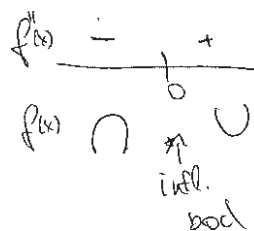 f''(x) − +
0
f(x) ∩ ∪
infl.
bod